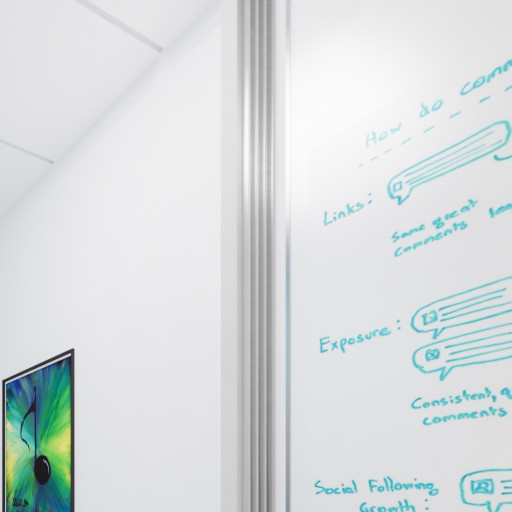 How do comm
Links:
Some great
comments
Exposure:
Consistent, q
comments
Social Following
Growth: